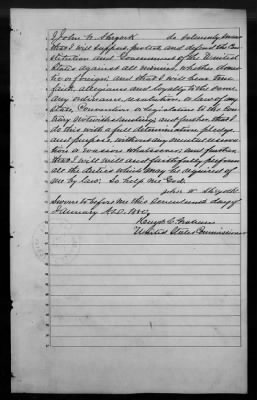 I John W. Shryock do solemnly swear
that I will support, protect and defend the Con-
stitution and Government of the United
States against all enemies, whether domes-
tic or foreign; and that I will bear true
faith, allegiance and loyalty to the same
any ordinance, resolution, or law of any
State, Convention or Legislature to the con-
trary notwithstanding; and further, that I
do this with a full determination, pledge
and purpose, without any mental reserva-
tion or evasion whatsoever; and further,
that I will well and faithfully perform
all the duties which may be required of
me by law; So help me God.
John W. Shryock
Sworn to before me this seventeenth day of
January A.D.
United States Commissioner